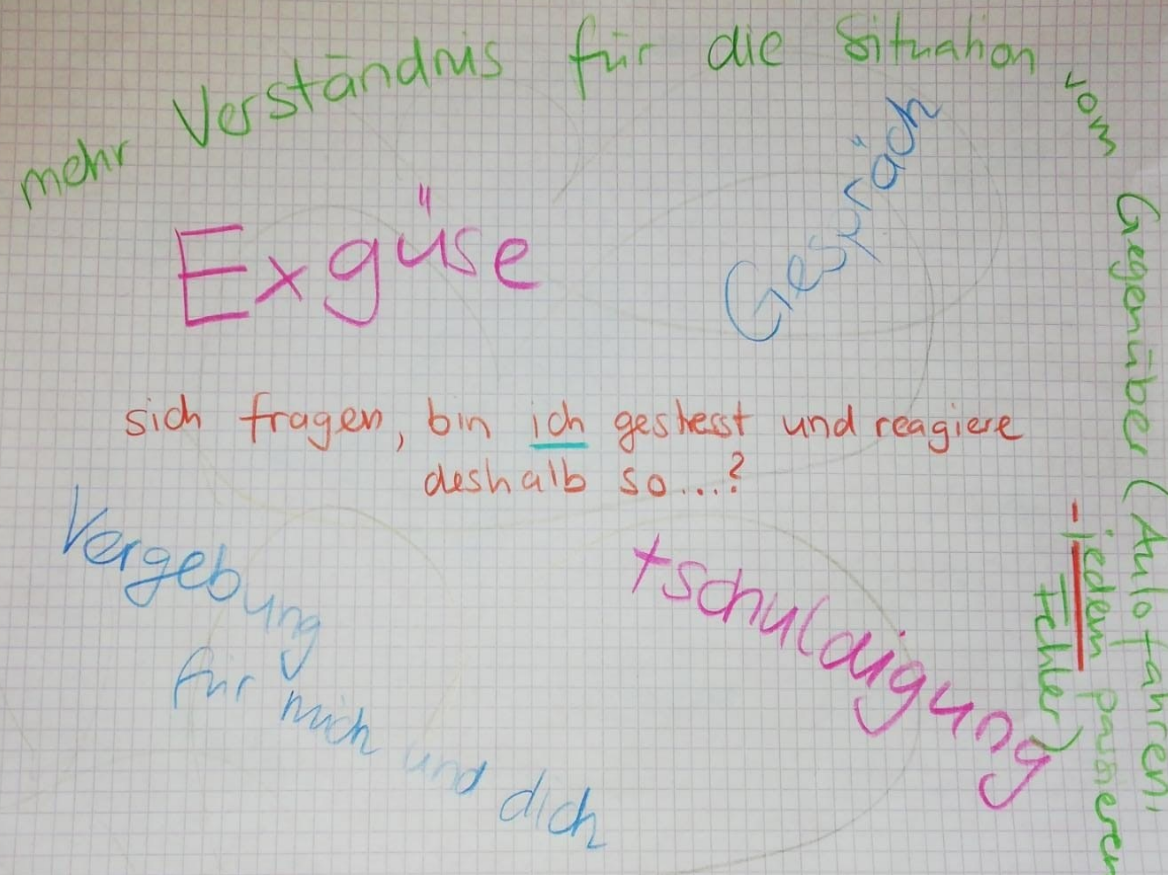 mehr Verständnis für die Situation vom Gegenüber (Autofahren,
- jedem passieren
Fehler)
Exgüse
Gespräch
sich fragen, bin ich gestresst und reagiere
deshalb so...?
Vergebung
für mich und dich
tschuldigung